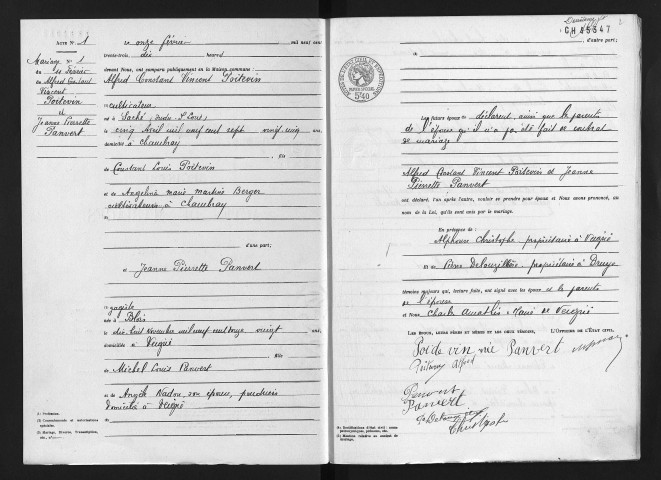 ACTE N° 1
Mariage N° 1
du 11 Février
de Alfred Constant
Vincent
Poitevin
et
Jeanne Pierrette
Panvert
Le onze février mil neuf cent
trente-trois dix heures
devant Nous, ont comparu publiquement en la Maison commune :
Alfred Constant Vincent Poitevin
cultivateur
né à Saché, Indre & Loire
le cinq Avril mil neuf cent sept vingt-cinq ans,
domicilié à Chambray
fils
de Constant Louis Poitevin
et de Angelina Marie Martine Berger
cultivateurs à Chambray
d'une part;
et Jeanne Pierrette Panvert
née à Blois
le dix huit Novembre mil neuf cent douze vingt ans,
domiciliée à Veigné
fille
de Michel Louis Panvert
et de Angèle Nadon, son épouse,
domiciliés à Veigné
(1) Profession.
(2) Consentements et autorisations
spéciales.
(3) Mariage, Divorce, Transcription,
etc.
CH 45347
d'autre part;
5f40
Les futurs époux déclarent, ainsi que les parents
de l'épouse qu'il n'a pas été fait de contrat
de mariage
Alfred Constant Vincent Poitevin et Jeanne
Pierrette Panvert
ont déclaré, l'un après l'autre, vouloir se prendre pour époux et Nous avons prononcé, au
nom de la Loi, qu'ils sont unis par le mariage.
En présence de :
Alphonse Christophe propriétaire à Veigné
Et de Pierre propriétaire à Druye
témoins majeurs qui, lecture faite, ont signé avec les époux et les parents
de l'épouse
et Nous Charles Maire de Veigné
LES EPOUX, LEURS PÈRES ET MÈRES ET LES DEUX TÉMOINS, L'OFFICIER DE L'ÉTAT CIVIL,
Poidevin née Panvert
Poitevin Alfred
Panvert
Panvert
Christophe